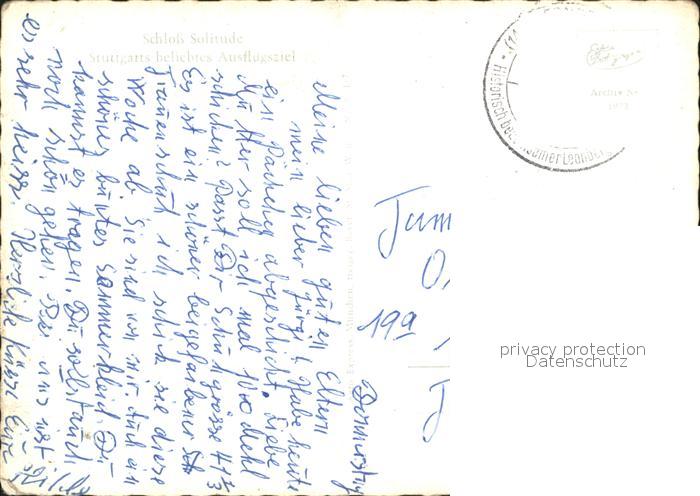 Schloß Solitude
Stuttgarts beliebtes Ausflugsziel
Archiv Nr.
Historisch
Leonberg
19a
Donnerstag
Meine lieben guten Eltern
mein lieber Jürgi, Habe heute
ein Päckchen abgeschickt. Liebe
Mutter soll ich mal 100 Mehl
schicken? Passt Dir Schuhgrösse 41⅓
Es ist ein schöner beigefarbener
ich schick sie diese
Woche ab Sie sind von mir auch ein
schönes buntes Sommerkleid. Du
kannst es tragen. Du sollst auch
noch schön gehen. Bei uns ist
es sehr heiss. Herzliche Küsse Eure
privacy protection
Datenschutz